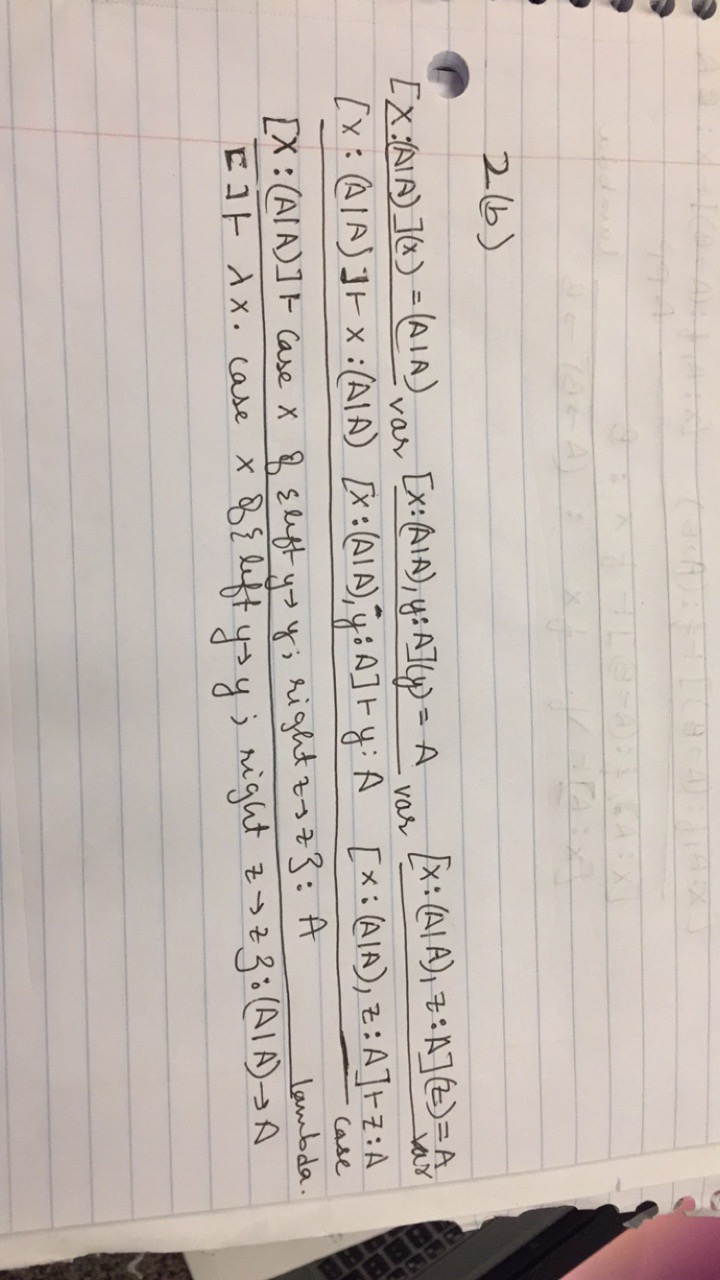 2(b)
[X:(A|A)](x) = (A|A) var [x:(A|A), y:A](y) = A var [x:(A|A), z:A](z) = A var
[x:(A|A)] ⊢ x:(A|A) [x:(A|A), y:A] ⊢ y:A [x:(A|A), z:A] ⊢ z:A case
[X:(A|A)] ⊢ Case x of {left y→y; right z→z}: A lambda.
[] ⊢ λx. case x of {left y→y; right z→z}:(A|A)→A